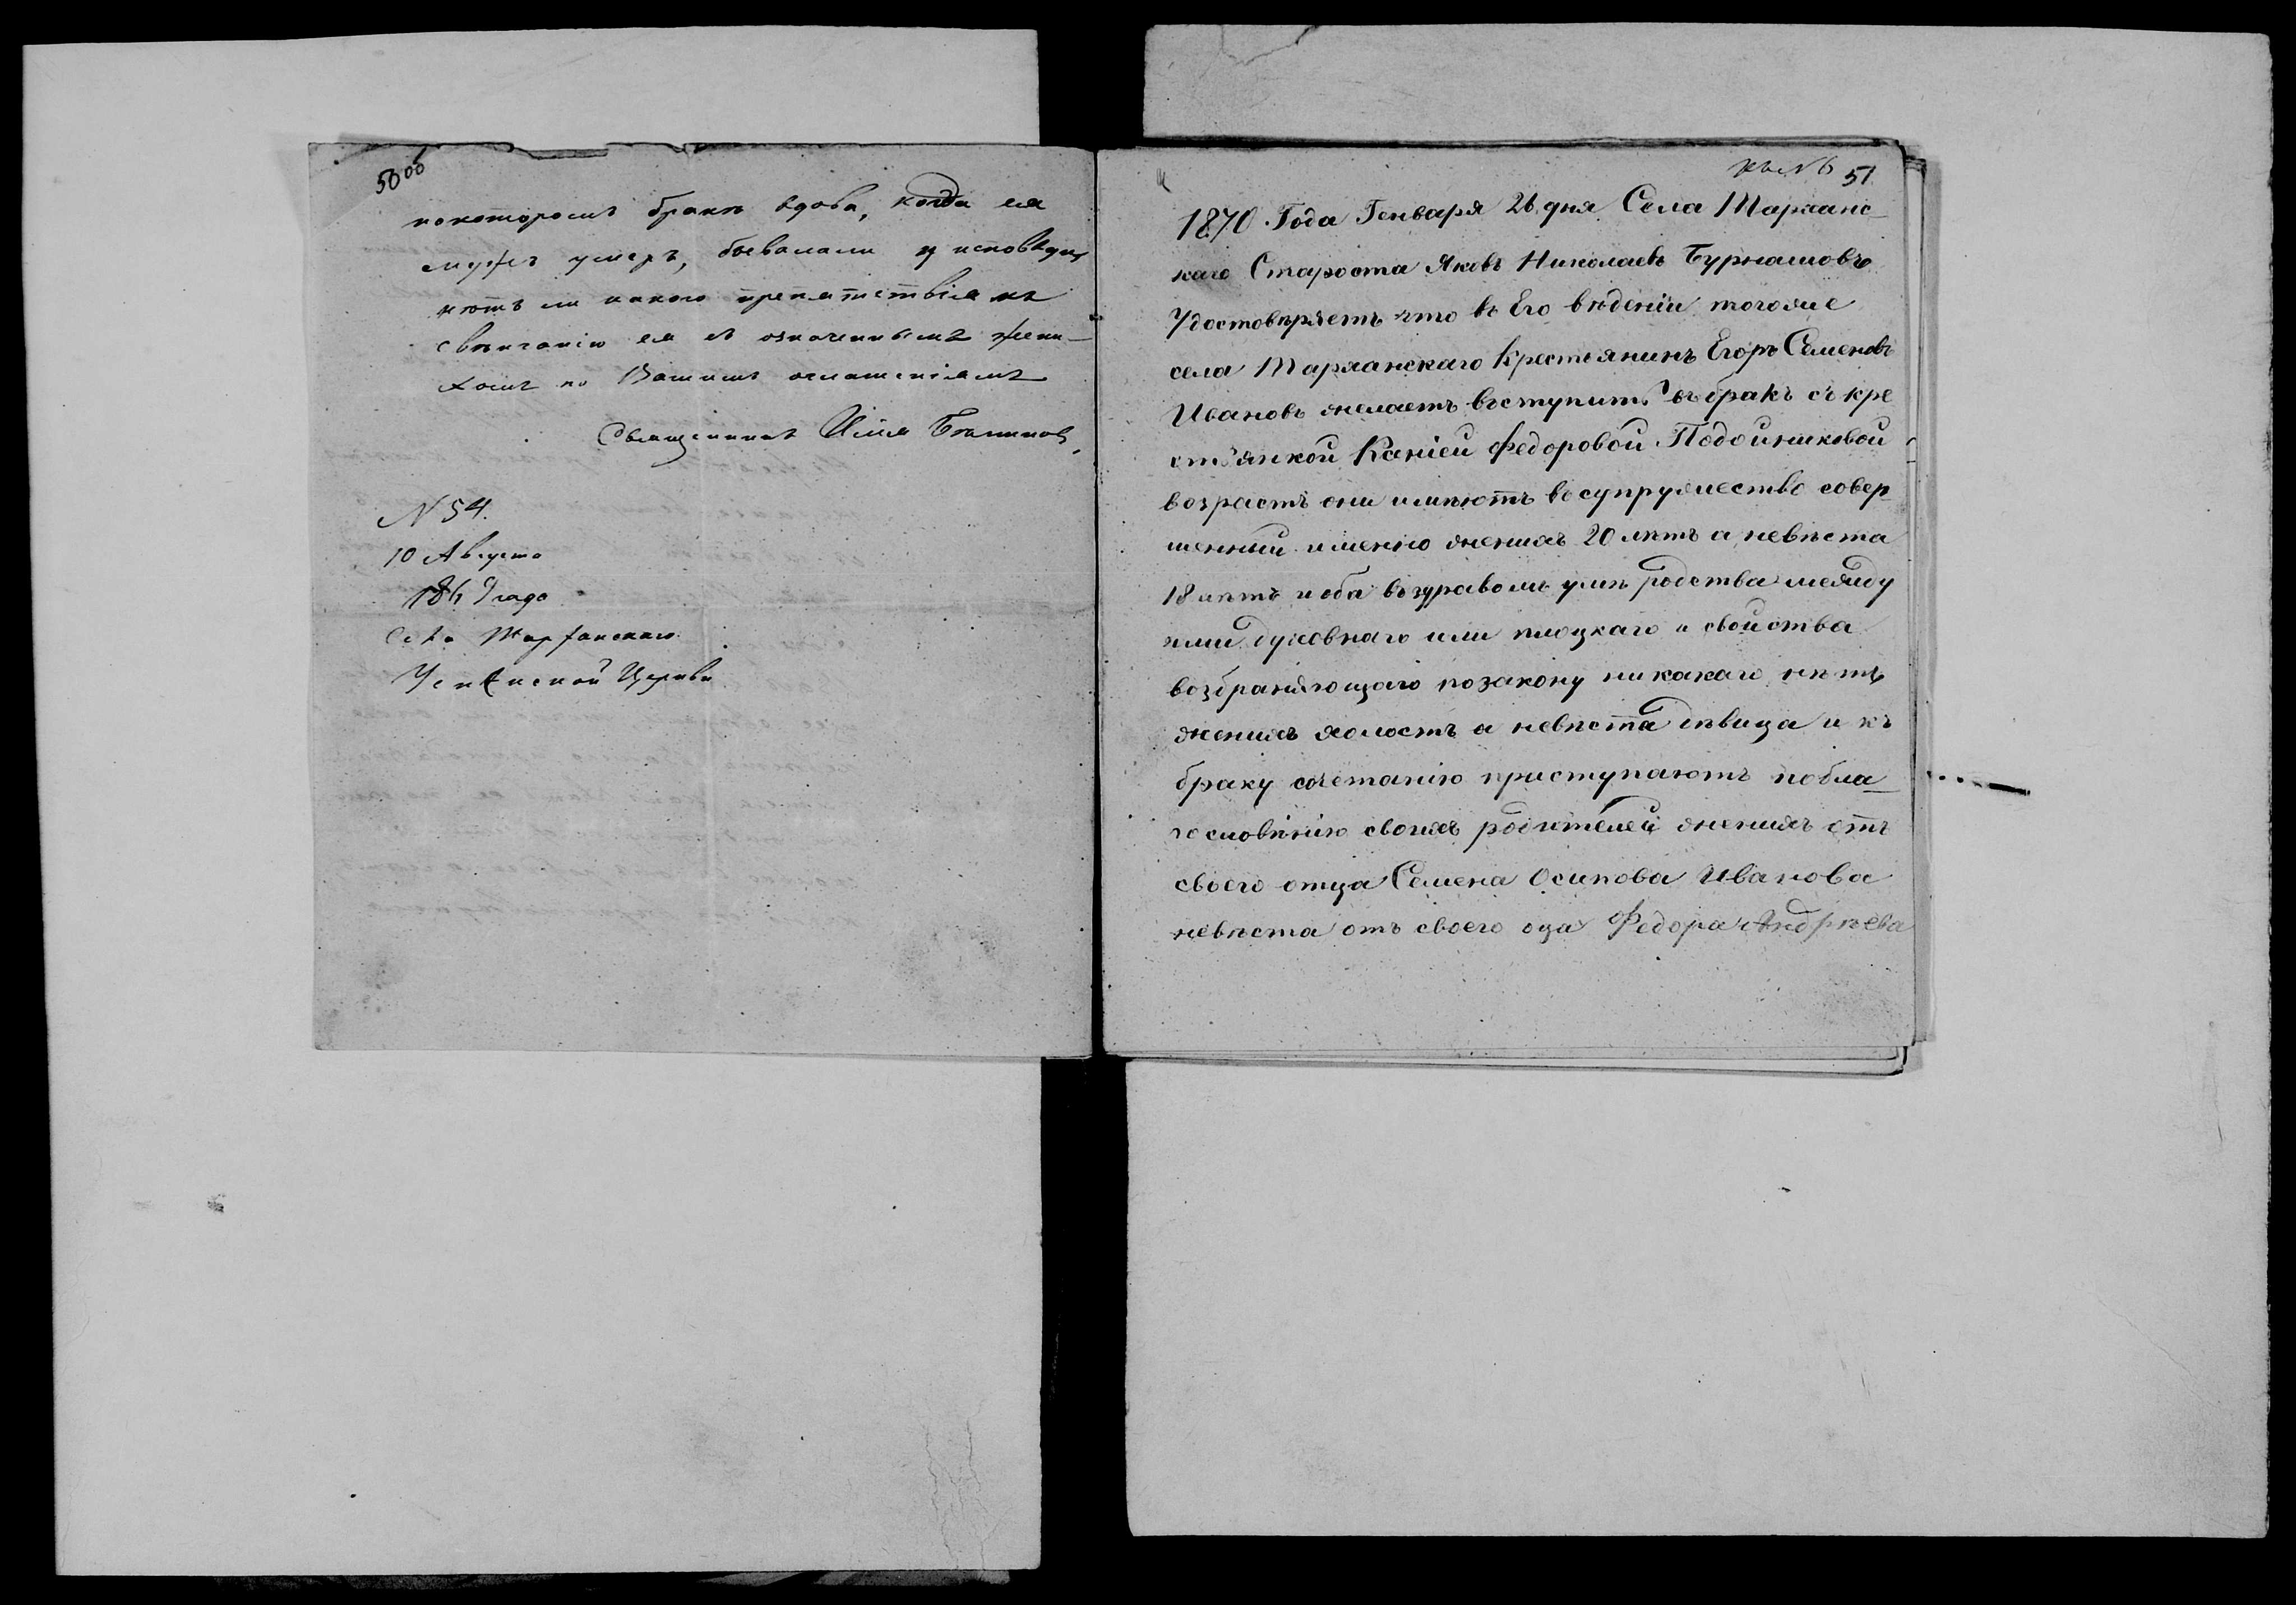 50об
покоторомъ бракѣ вдова, когда ея
мужъ умеръ, бывалали у исповѣди,
нѣтъ ли какого препятствія къ
свѣнчанію ея съ означеннымъ жени-
хомъ по Вашимъ оглашеніямъ
Священникъ Илія
N 54.
10 Августа
1869 года
Села
Успенской Церкви
къ N 6 51
1870 Года Генваря 26 дня Села Тарханс-
каго Староста Яковъ Николаевъ Бурнашовъ
Удостовѣряетъ что въ Его вѣденіи тогоже
села Тарханскаго Крестьянинъ Егоръ Семеновъ
Ивановъ желаетъ въступить въ бракъ съ кре
стьянкой Ксніей Федоровой Подойниковой
возрастъ они имѣютъ во супружество совер-
шенный именно женихъ 20 лѣтъ а невѣста
18 лѣтъ и оба въ здравомъ умѣ родства между
ими духовнаго или плоцкаго и свойства
возбраняющаго позакону никакаго нѣтъ
женихъ холостъ а невѣста дѣвица и къ
браку сочетанію приступаютъ побла-
гословѣнію своихъ родителей женихъ отъ
своего отца Семена Осипова Иванова
невѣста отъ своего оца Федора Андрѣева